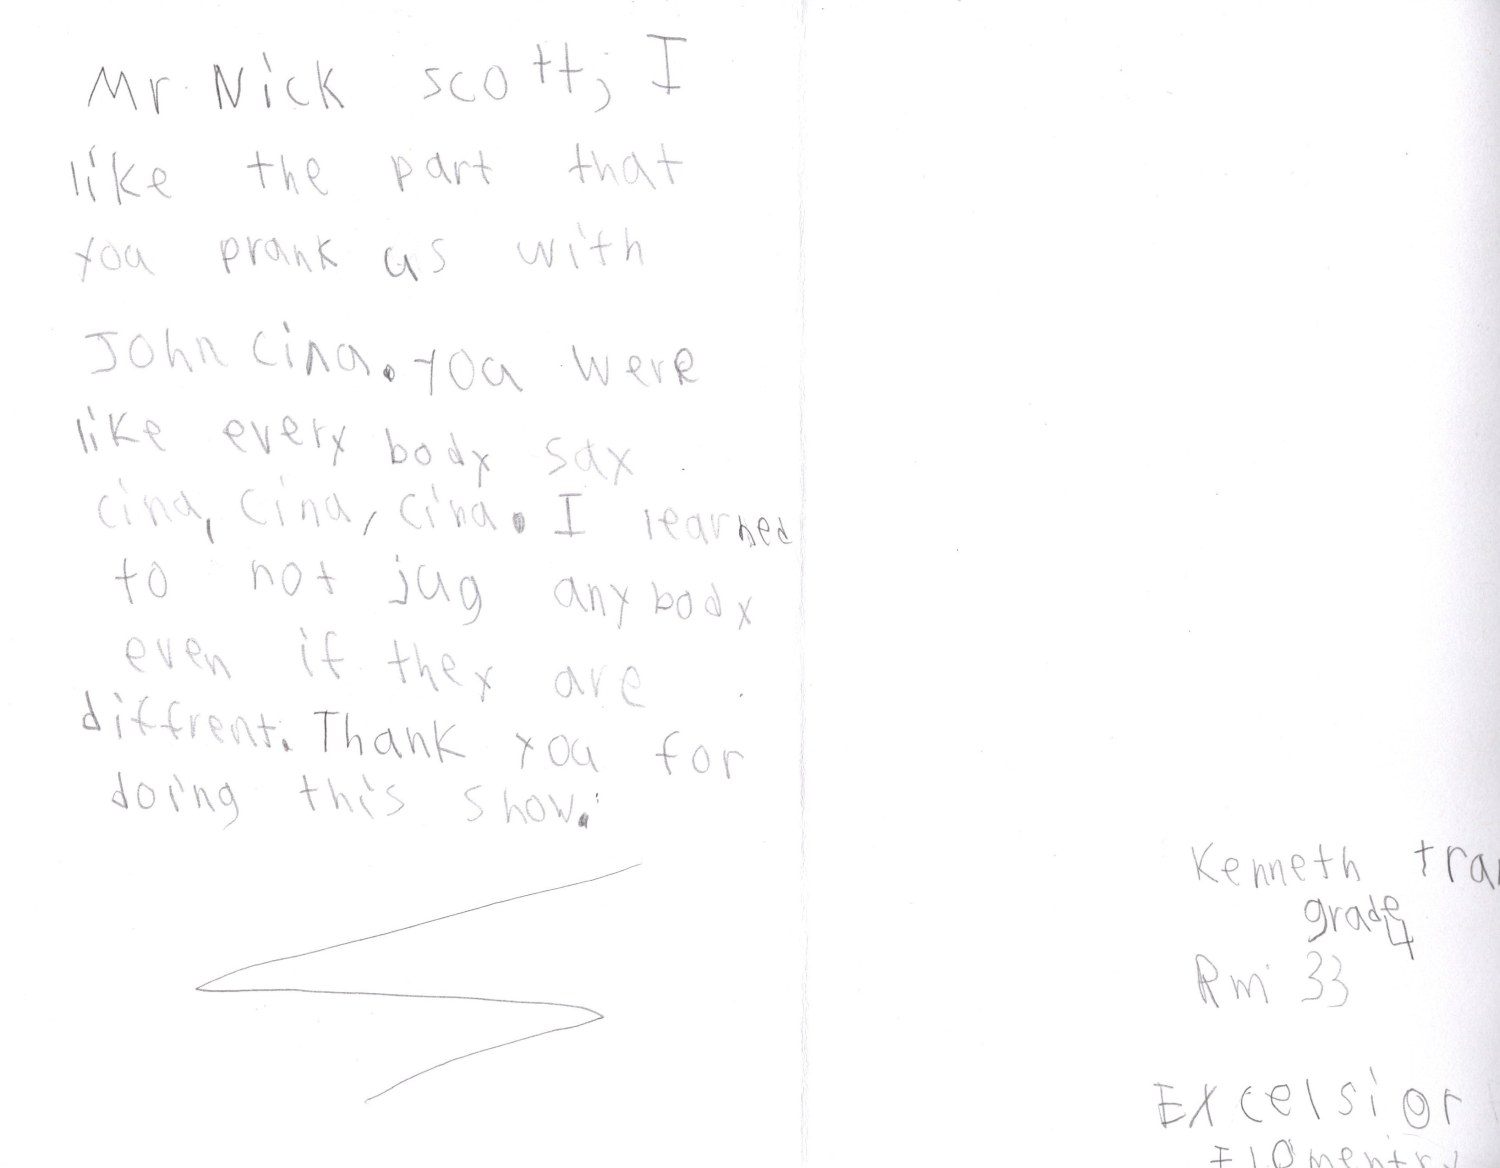 Mr. Nick scott, I
like the part that
you prank us with
John Cina. you were
like every body say
cina, cina, cina. I learned
to not jug any body
even if they are
diffrent. Thank you for
doing this show.
Kenneth tran
grade 4
Rm 33
Excelsior
Elementry